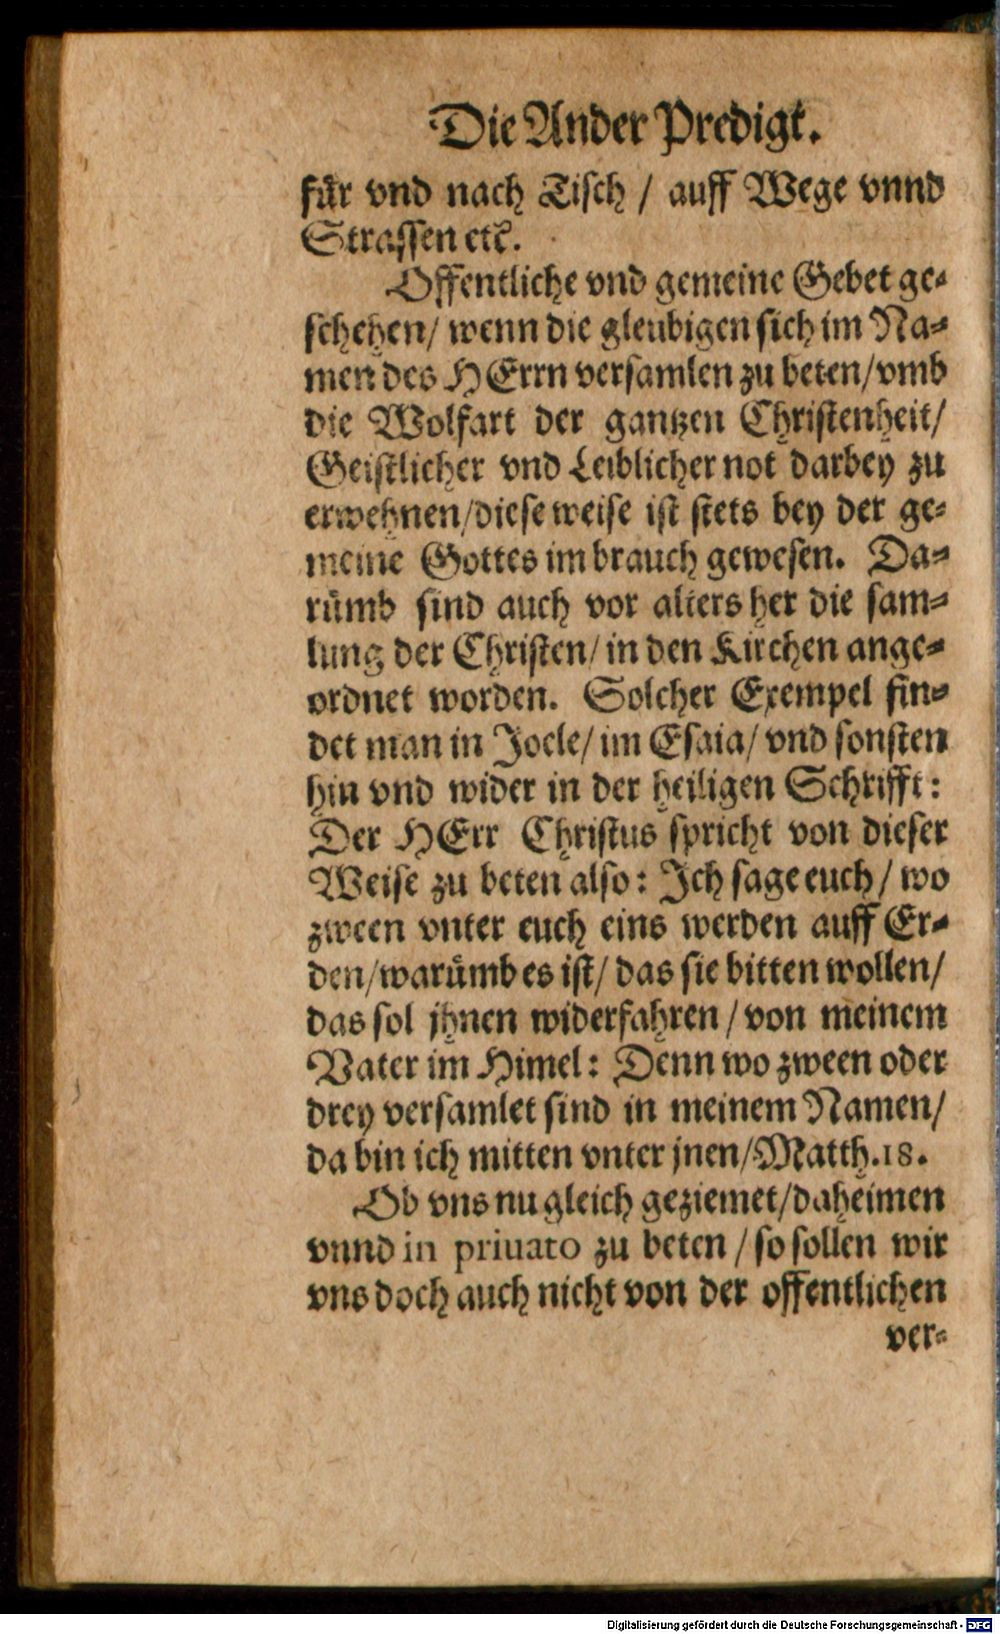 Die Ander Predigt.
für vnd nach Tisch / auff Wege vnnd
Strassen etc̃.
Offentliche vnd gemeine Gebet ge-
schehen/ wenn die gleubigen sich im Na-
men des HErrn versamlen zu beten/ vmb
die Wolfart der gantzen Christenheit/
Geistlicher vnd Leiblicher not darbey zu
erwehnen/ diese weise ist stets bey der ge-
meine Gottes im brauch gewesen. Da-
rümb sind auch vor alters her die sam-
lung der Christen/ in den Kirchen ange-
ordnet worden. Solcher Exempel fin-
det man in Joele/ im Esaia/ vnd sonsten
hin vnd wider in der heiligen Schrifft:
Der HErr Christus spricht von dieser
Weise zu beten also: Ich sage euch/ wo
zween vnter euch eins werden auff Er-
den/ warümb es ist/ das sie bitten wollen/
das sol jhnen widerfahren / von meinem
Vater im Himel: Denn wo zween oder
drey versamlet sind in meinem Namen/
da bin ich mitten vnter jnen/ Matth.18.
Ob vns nu gleich geziemet/ daheimen
vnnd in priuato zu beten / so sollen wir
vns doch auch nicht von der offentlichen
ver-
Digitalisierung gefördert durch die Deutsche Forschungsgemeinschaft - DFG